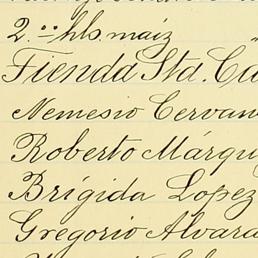 2. hls. maíz
Tienda Std. Ca
Nemesio Cervan
Roberto Márqu
Brígida Lopez
Gregorio Alvara